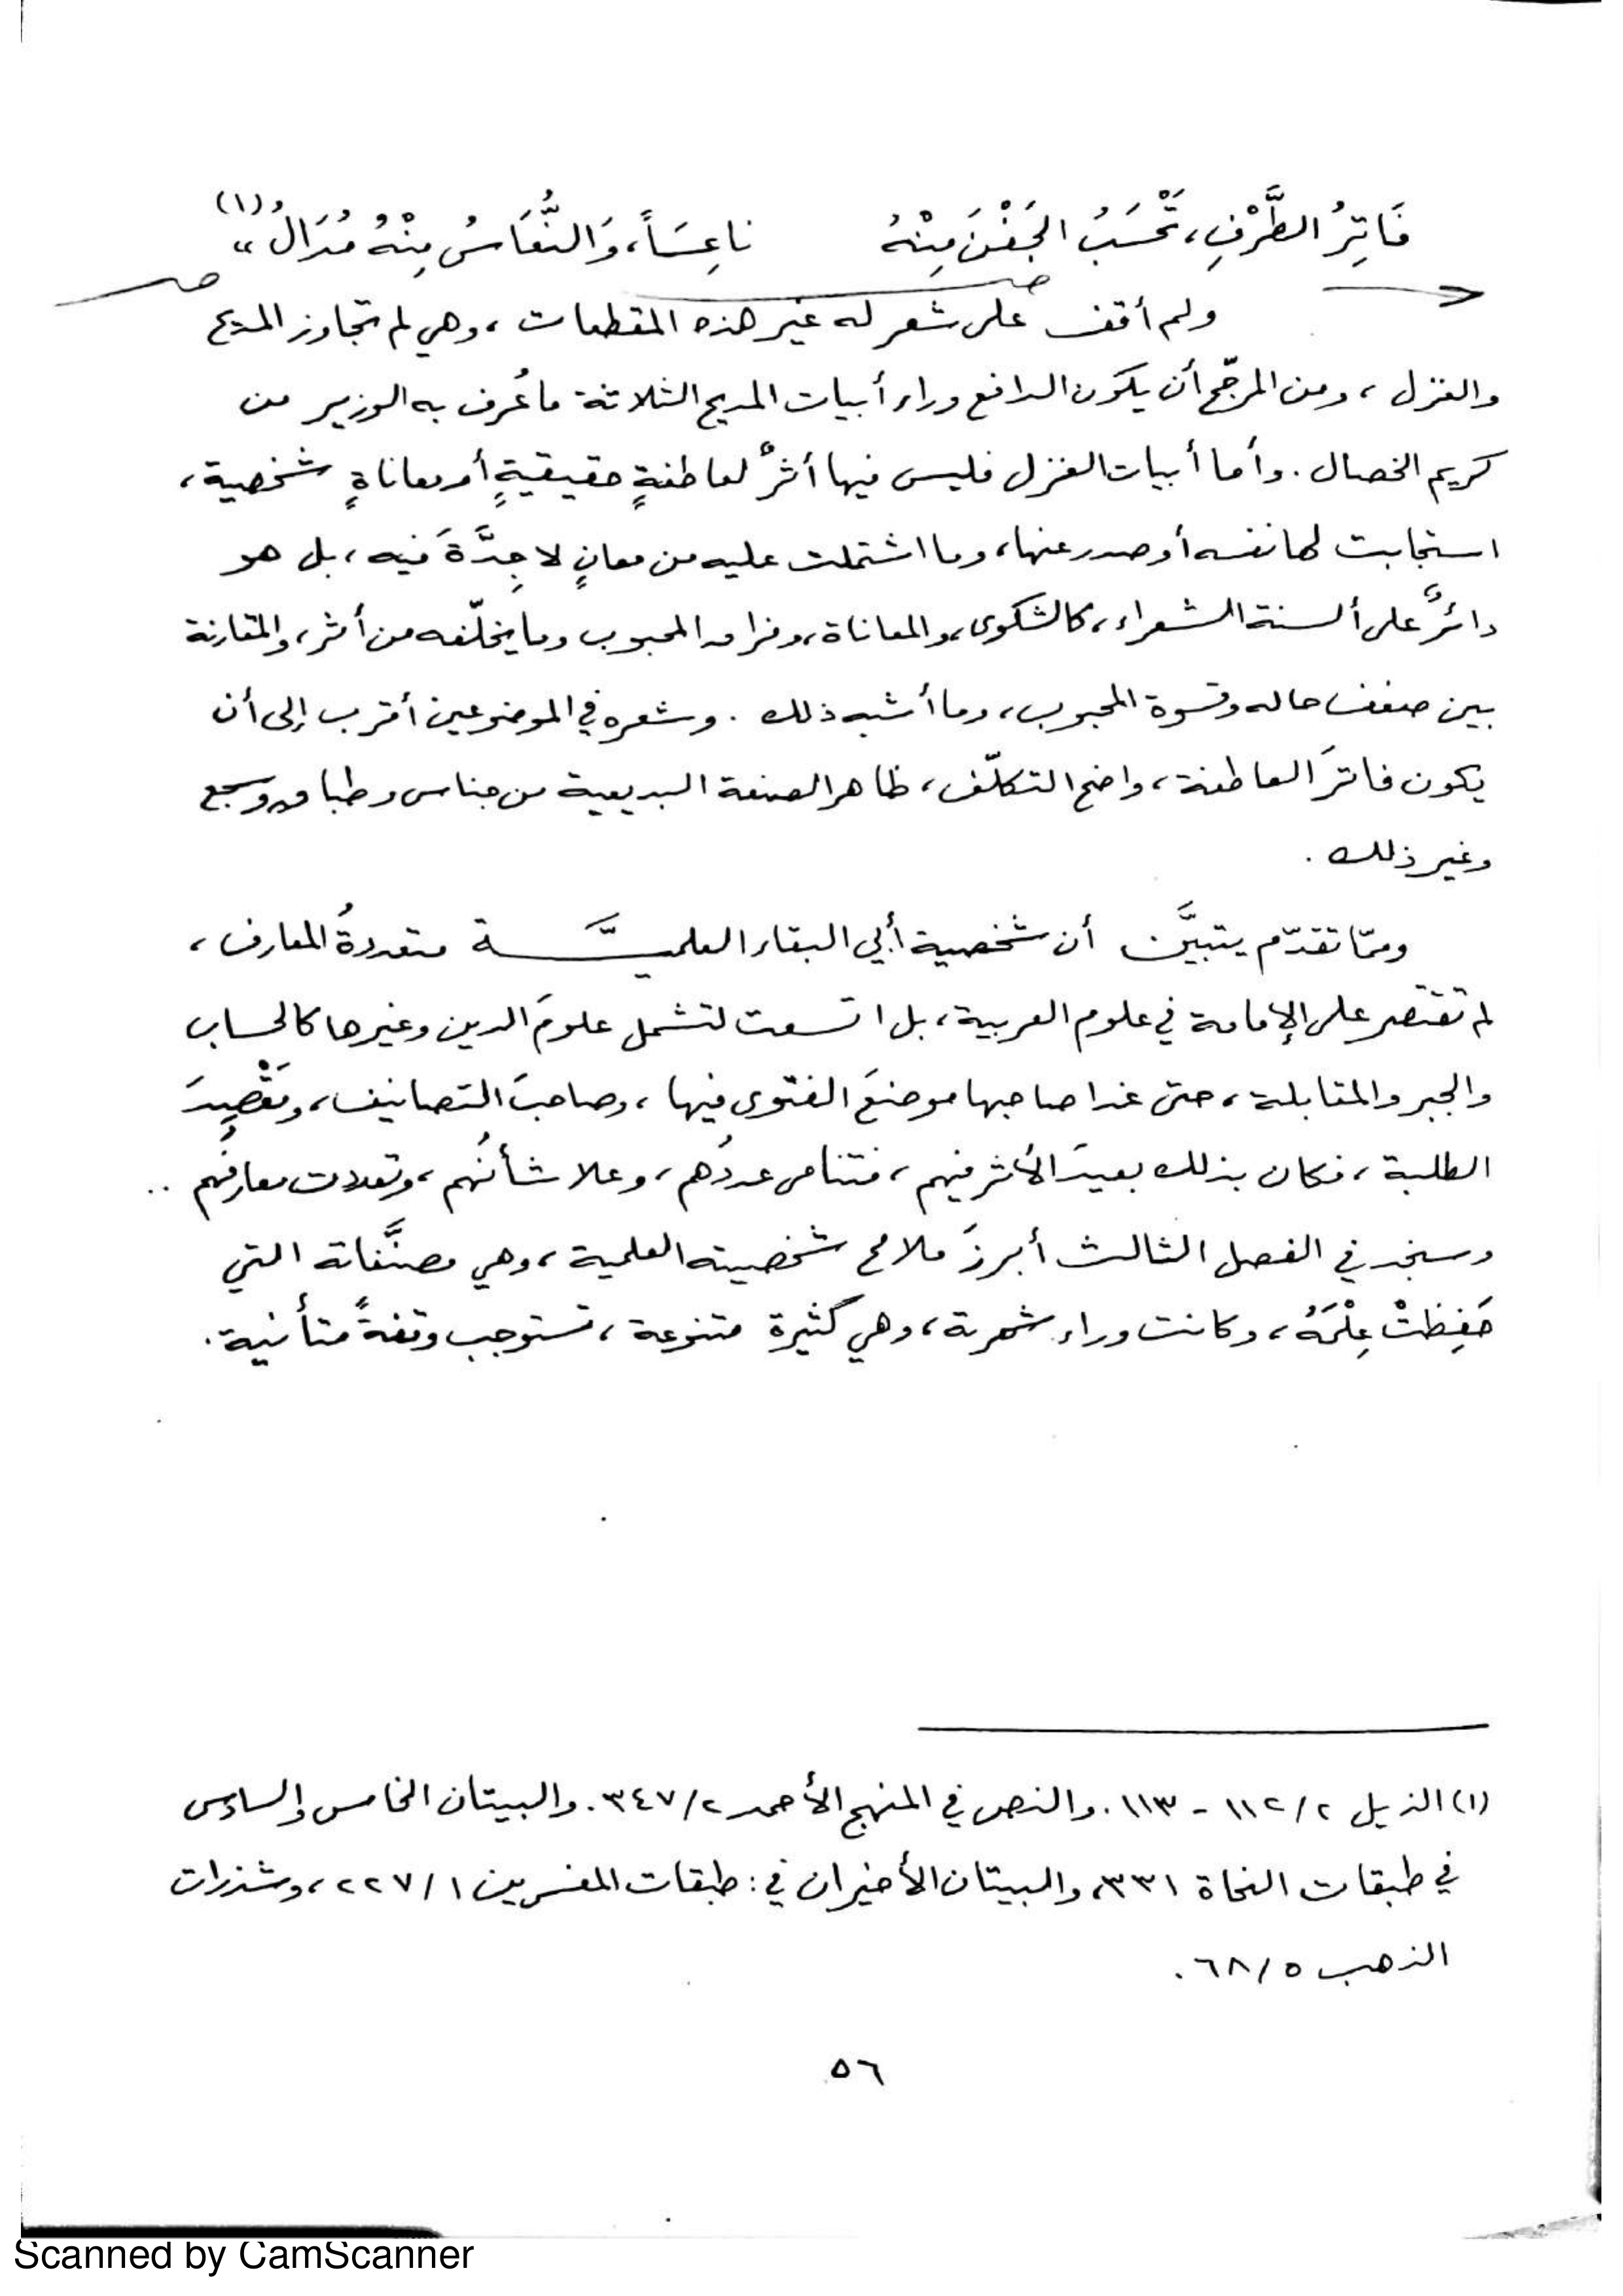 فَاتِرُ الطَّرْفِ، تَحْسَبُ الجَفْنَ مِنْهُ ناعِسَاً، وَالنُّعَاسُ مِنْهُ مُدَالُ» (١)
ولم أقف على شعر له غير هذه المقطعات، وهي لم تجاوز المديح
والغزل، ومن المرجّح أن يكون الدافع وراء أبيات المديح الثلاثة ما عُرف به الوزير من
كريم الخصال. وأما أبيات الغزل فليس فيها أثرٌ لعاطفةٍ حقيقيةٍ أو معاناةٍ شخصية،
استجابت لها نفسه أو صدر عنها، وما اشتملت عليه من معانٍ لا جِدَّةَ فيه، بل هو
دائرٌ على ألسنة الشعراء، كالشكوى، والمعاناة، وفراق المحبوب وما يخلّفه من أثر، والمقارنة
بين ضعف حاله وقسوة المحبوب، وما أشبه ذلك. وشعره في الموضوعين أقرب إلى أن
يكون فاترَ العاطفة، واضح التكلّف، ظاهر الصنعة البديعية من جناس وطباق وسجع
وغير ذلك.
وممّا تقدّم يتبيَّن أن شخصية أبي البقاء العلميَّـــة متعددةُ المعارف،
لم تقتصر على الإمامة في علوم العربية، بل اتسعت لتشمل علومَ الدين وغيرها كالحساب
والجبر والمقابلة، حتى غدا صاحبها موضعَ الفتوى فيها، وصاحبَ التصانيف، ومَقْصِدَ
الطلبة، فكان بذلك بعيدَ الأثر فيهم، فتنامى عددُهم، وعلا شأنُهم، وتعددت معارفُهم ..
وسنجد في الفصل الثالث أبرزَ ملامح شخصيته العلمية، وهي مصنَّفاته التي
حَفِظَتْ عِلْمَهُ، وكانت وراء شهرته، وهي كثيرة متنوعة، تستوجب وقفةً متأنية.
(١) الذيل ٢/ ١١٢ - ١١٣. والنص في المنهج الأحمد ٢/ ٣٤٧. والبيتان الخامس والسادس
في طبقات النحاة ٣٣١، والبيتان الأخيران في: طبقات المفسرين ١/ ٢٢٧، وشذرات
الذهب ٥/ ٦٨.
٥٦
Scanned by CamScanner